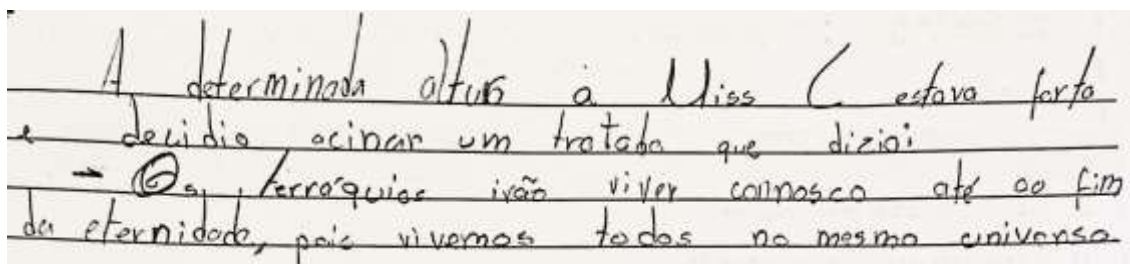 A determinada altura a Miss C estava farta
e decidio acinar um tratado que dizia:
- Os terráquios irão viver connosco até ao fim
da eternidade, pois vivemos todos no mesmo universo